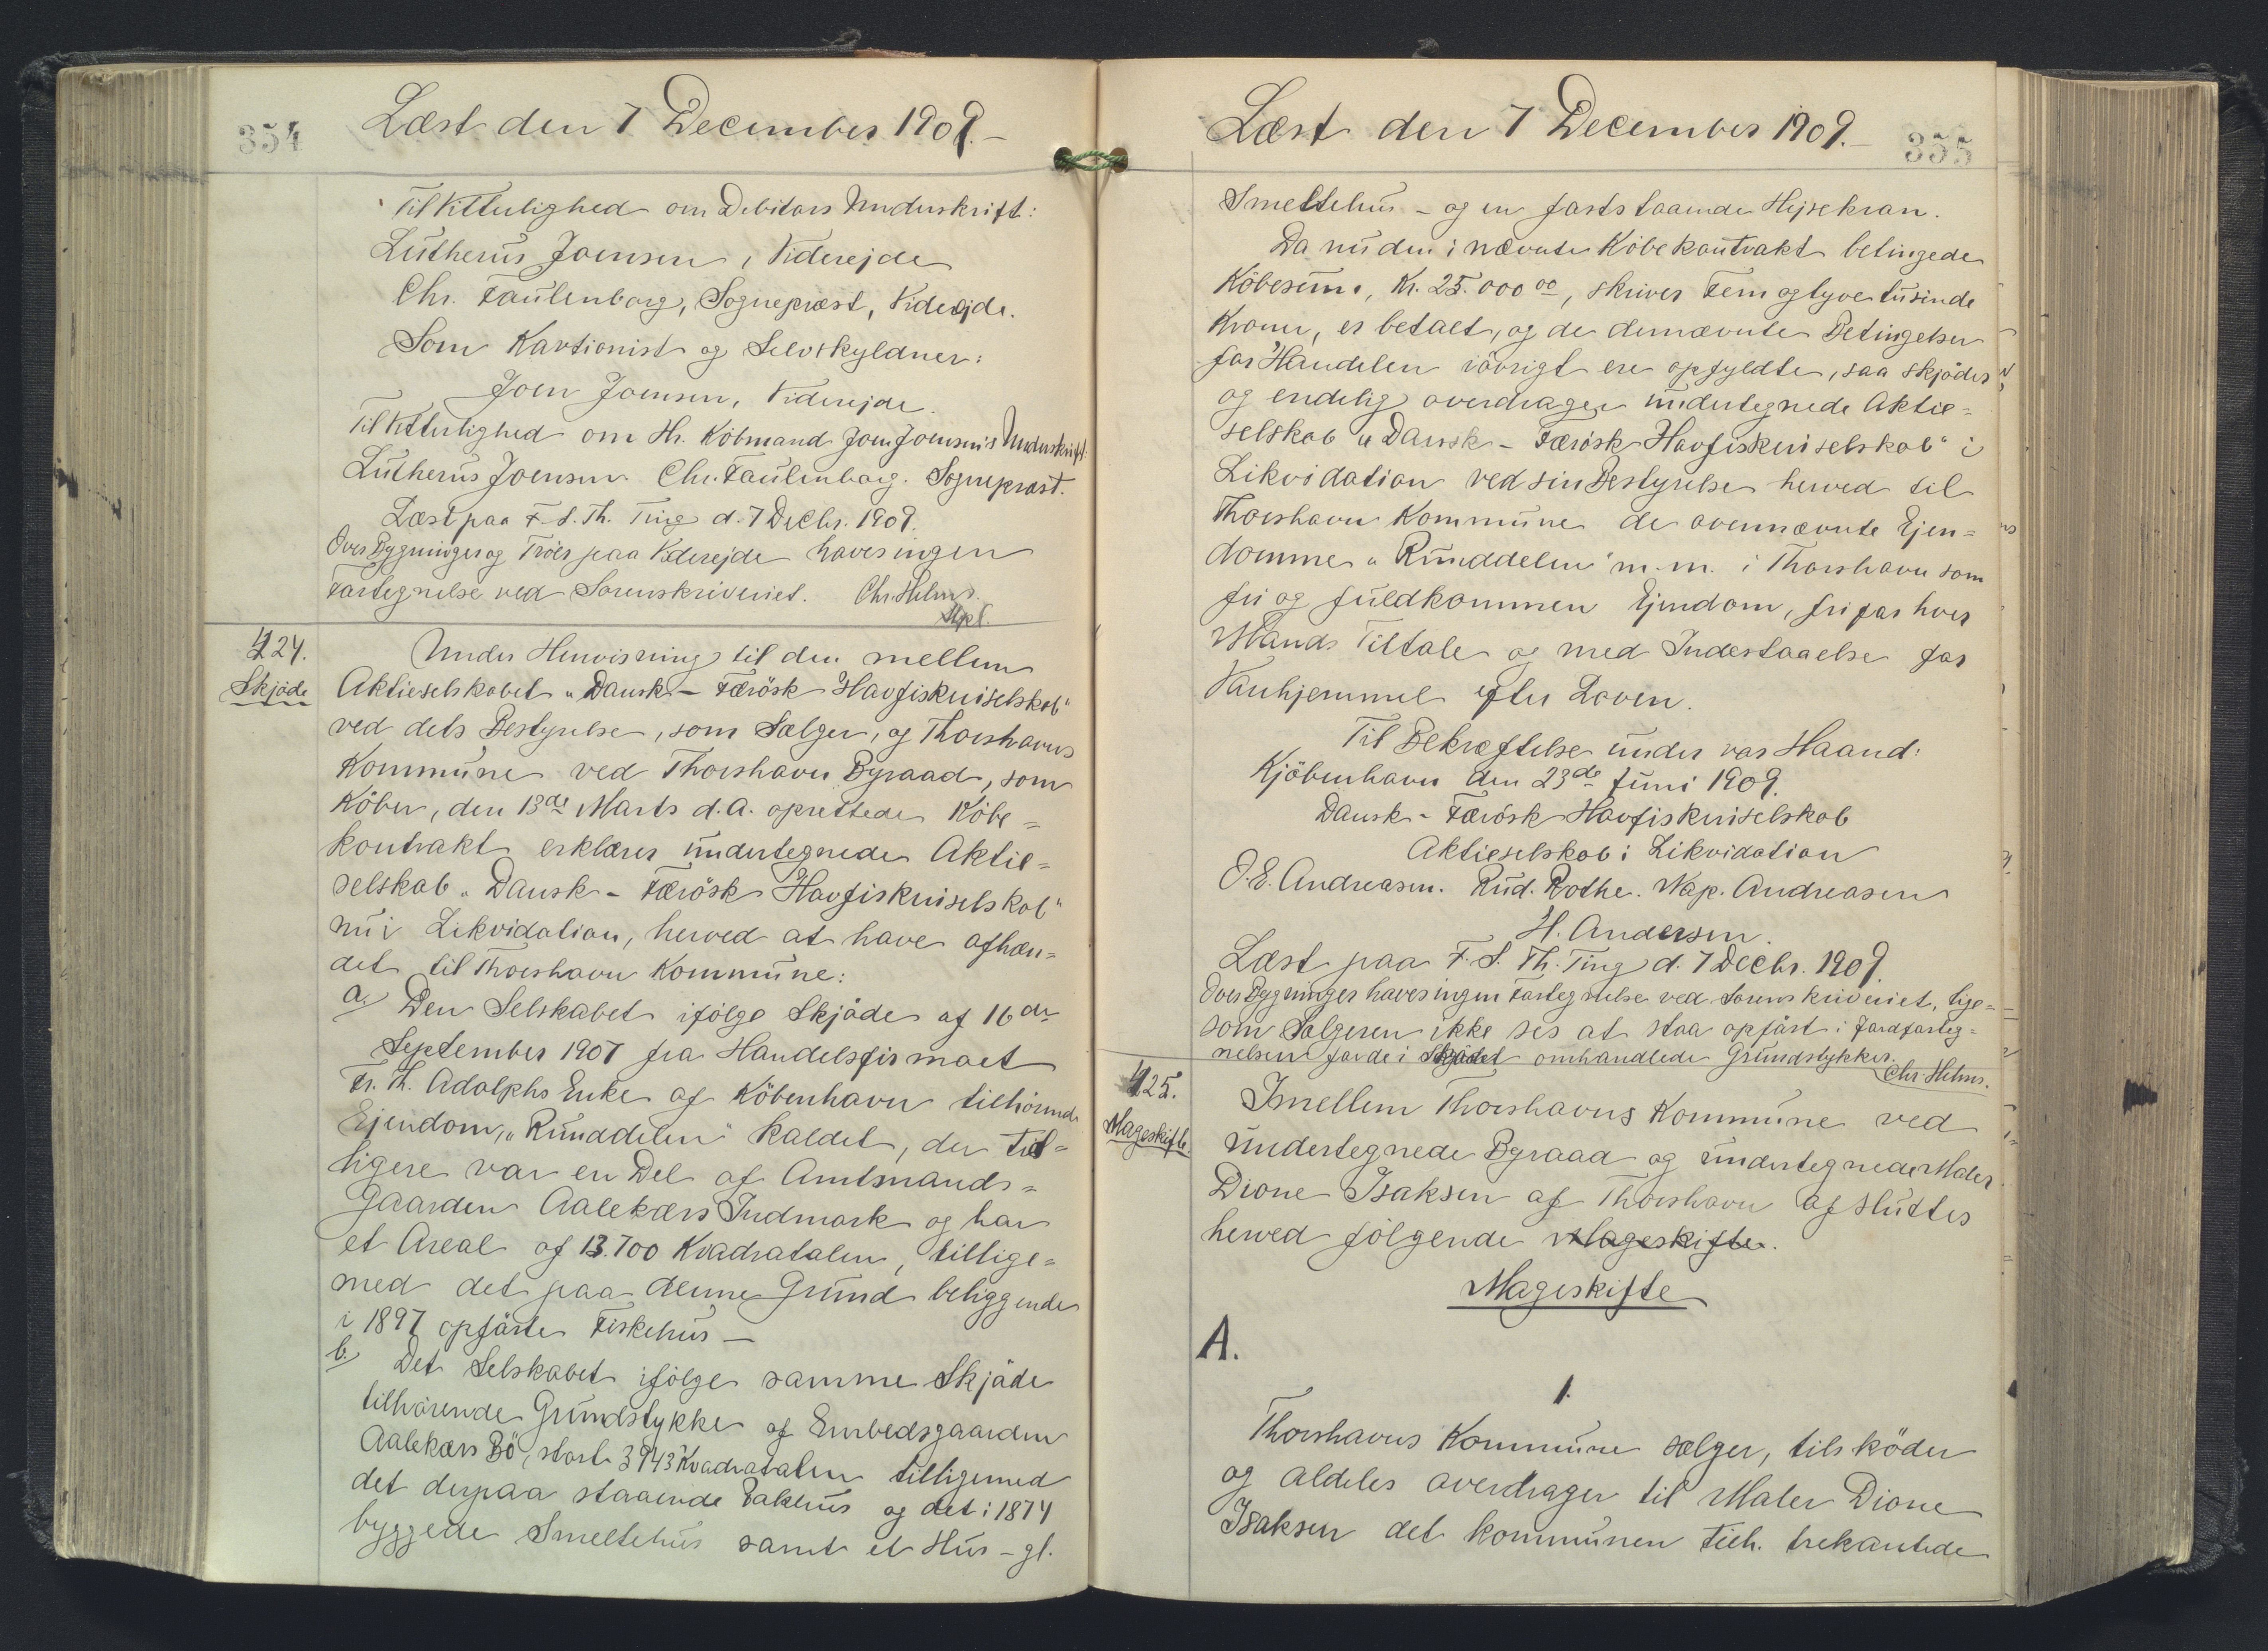 354
Læst den 7 December 1909.-
Til Vitterlighed om Debitors Underskrift:
Lutherus Joensen, Viderejde
Chr. Faulenborg, Sognepræst, Viderejde.
Som Kavtionist og Selvskyldner:
Joen Joensen, Viderejde.
Til Vitterlighed om Hr. Köbmand Joen Joensen's Underskrift:
Lutherus Joensen Chr. Faulenborg. Sognepræst.
Læst paa F. S. Th. Ting d. 7 Decbr. 1909.
Over Bygninger og Tröer paa Viderejde haves ingen
Fortegnelse ved Sorenskriveriet. Chr. Helms.
Kpl.
424.
Skjöde
Under Henvisning til den mellem
Aktieselskabet „Dansk - Færösk Havfiskeriselskab"
ved dets Bestyrelse, som Sælger, og Thorshavns
Kommune ved Thorshavn Byraad, som
Köber, den 13de Marts d.A. oprettede Köbe=
kontrakt erklærer undertegnede Aktie=
selskab „Dansk - Færösk Havfiskeriselskab"
nu i Likvidation, herved at have afhæn=
det til Thorshavn Kommune:
a. Den Selskabet ifölge Skjöde af 16de
September 1907 fra Handelsfirmaet
Fr. Th. Adolphs Enke af Köbenhavn tilhörende
Ejendom, „Runddelen" kaldet, der tid=
ligere var en Del af Amtmands=
gaarden Aalekærs Indmark og har
et Areal af 13.700 Kvadratalen, tillige=
med det paa denne Grund beliggende
i 1897 opförte Fiskehus -
b. Det Selskabet ifölge samme Skjöde
tilhörende Grundstykke af Embedsgaarden
Aalekærs Bö, stort 3943 Kvadratalen tilligemed
det derpaa staaende Pakhus og det i 1874
byggede Smeltehus samt et Hus - gl.
Læst den 7 December 1909.-
355
Smeltehus - og en faststaaende Hejsekran.
Da nu den i nævnte Köbekontrakt betingede
Köbesum, Kr. 25.000 00, skriver Fem og tyve tusinde
Kroner, er betalt, og de dernævnte Betingelser
for Handelen iövrigt ere opfyldte, saa skjöder
og endelig overdrager undertegnede Aktie=
selskab „Dansk - Færösk Havfiskeriselskab" i
Likvidation ved sin Bestyrelse herved til
Thorshavn Kommune de ovennævnte Ejen=
domme „Runddelen" m.m. i Thorshavn som
fri og fuldkommen Ejendom, fri for hver
Mands Tiltale og med Indestaaelse for
Vanhjemmel efter Loven.
Til Bekræftelse under vor Haand:
Kjöbenhavn den 23de Juni 1909.
Dansk - Færösk Havfiskeriselskab
Aktieselskab i Likvidation
O. E. Andreasen. Rud. Rothe. Nap. Andreasen
H. Andersen.
Læst paa F. S. Th. Ting d. 7 Decbr. 1909.
Over Bygninger haves ingen Fortegnelse ved Sorenskriveriet, lige=
som Sælgeren ikke ses at staa opfört i Jordforteg=
nelsen for de i Skjödet omhandlede Grundstykker.
Chr. Helms.
425.
Mageskifte.
Imellem Thorshavns Kommune ved
undertegnede Byraad og undertegnede Maler
Dione Isaksen af Thorshavn afsluttes
herved fölgende Mageskifte.
Mageskifte
A.
1.
Thorshavns Kommune sælger, tilsköder
og aldeles overdrager til Maler Dione
Isaksen det kommunen tilh. trekantede